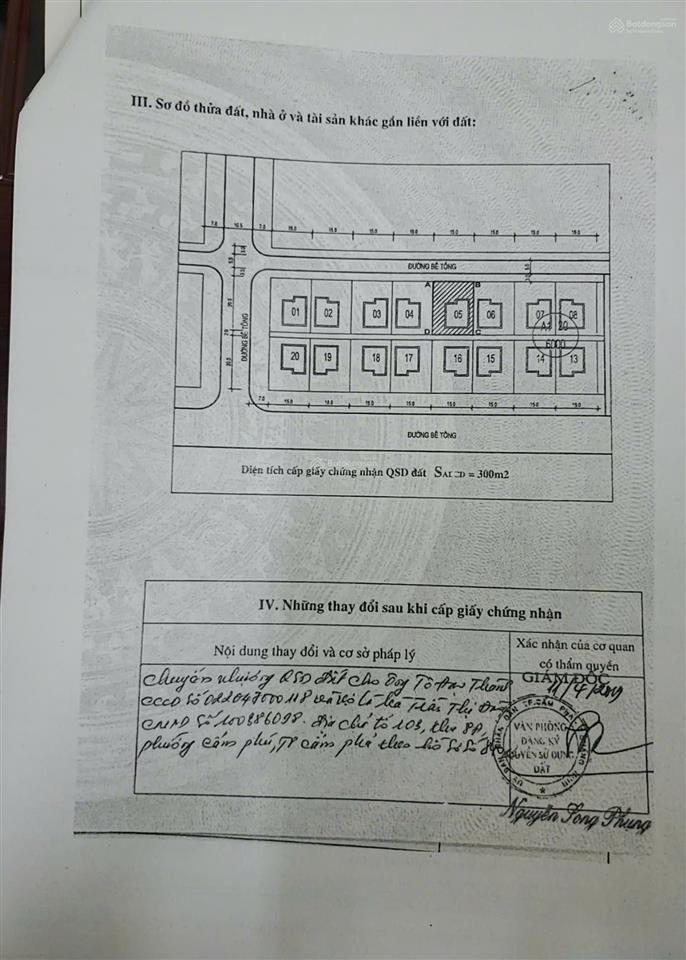 Batdongsan
III. Sơ đồ thửa đất, nhà ở và tài sản khác gắn liền với đất:
7.0 10.5 7.0 15.0 15.0 15.0 15.0 15.0 15.0 15.0 15.0
ĐƯỜNG BÊ TÔNG
A B
01 02 03 04 05 06 07 08
D C
A1 20
6000
ĐƯỜNG BÊ TÔNG
20 19 18 17 16 15 14 13
7.0 15.0 15.0 15.0 15.0 15.0 15.0 15.0 15.0
ĐƯỜNG BÊ TÔNG
Diện tích cấp giấy chứng nhận QSD đất = 300m2
IV. Những thay đổi sau khi cấp giấy chứng nhận
Nội dung thay đổi và cơ sở pháp lý
Xác nhận của cơ quan
có thẩm quyền
GIÁM ĐỐC
Chuyển nhượng QSD Đất cho ông Tô
CCCD Số và vợ là bà Trần Thị
CMND Số 100886098. Địa chỉ tổ 103, khu
phường Cẩm Phú, TP Cẩm Phả theo hồ sơ số
VĂN PHÒNG
ĐĂNG KÝ
QUYỀN SỬ DỤNG
ĐẤT
Nguyễn Song Phung